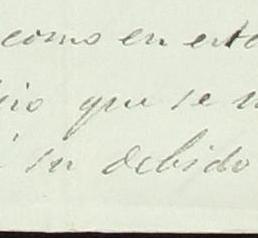 como en esta
que se
su debido